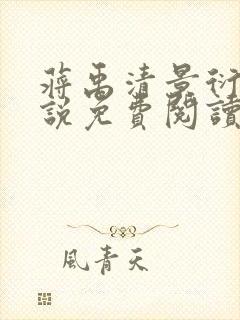 蔣禹清景衍
說免費閱讀
風青天